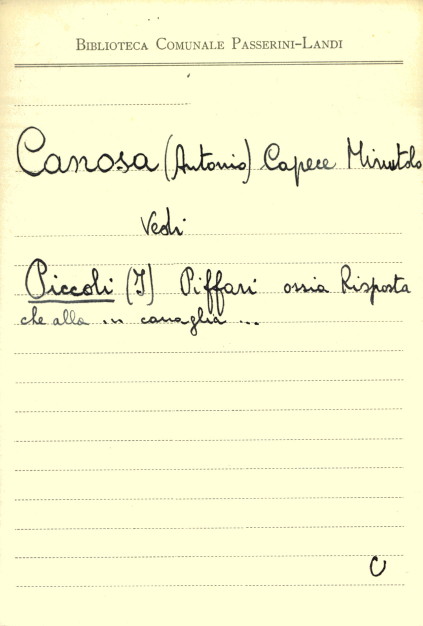 BIBLIOTECA COMUNALE PASSERINI-LANDI
Canosa (Antonio) Capece Minutolo
Vedi
Piccoli (I) Piffari ossia Risposta
che alla in canaglia ...
C